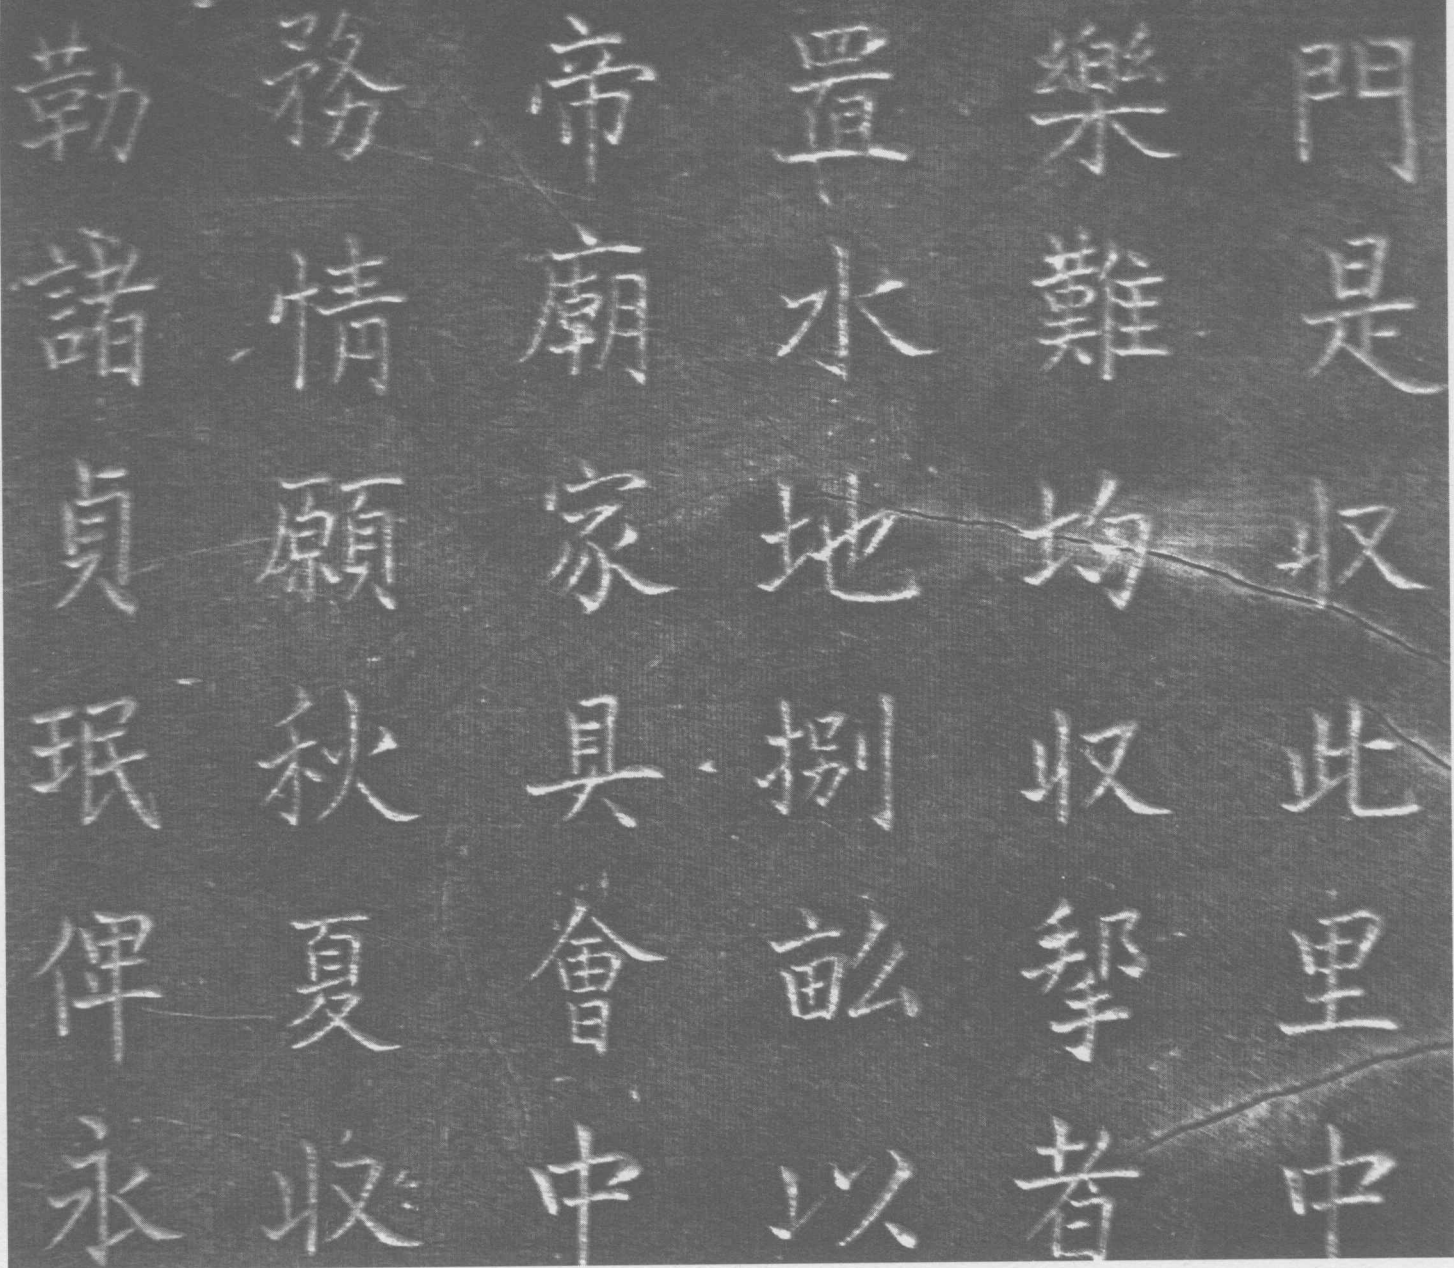 門是収此里中
樂難均収者
置水地捌畝以
帝廟家具會中
務情願秋夏收
勒諸貞珉俾永